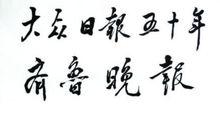 大众日報五十年
齐魯晚報